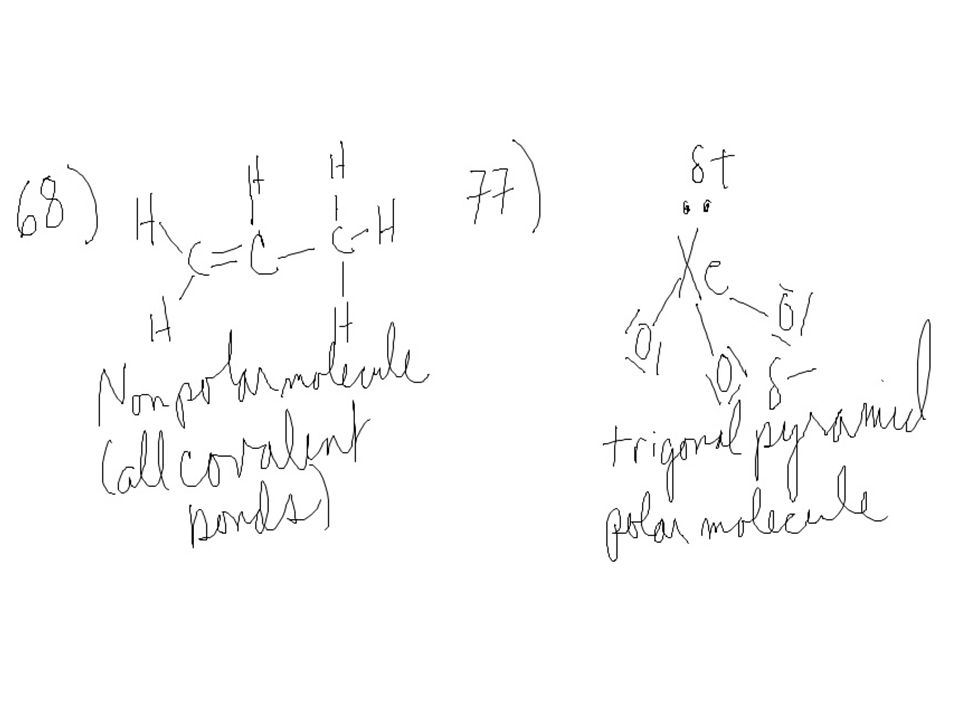 68)
H H H
H C = C - C - H
H H
Nonpolar molecule
(all covalent
bonds)
77)
δ+
Xe
O O O
δ-
trigonal pyramid
polar molecule